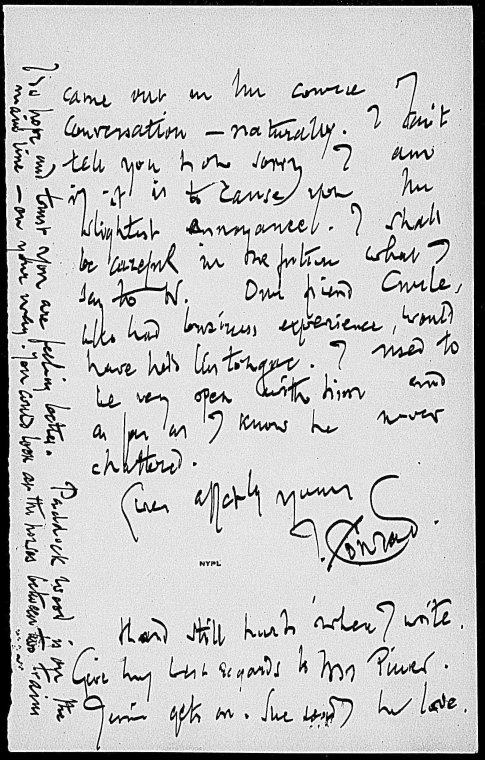 came out in the course of
conversation — naturally. I can't
tell you how sorry I am
if it is to cause you the
slightest annoyance. I shall
be careful in the future what I
say to N. Our friend Curle,
who had business experience, would
have held his tongue. I used to
be very open with him and
as far as I know he never
chattered.
Ever affctly yours
J. Conrad.
NYPL
Hand still hurts when I write.
Give my best regards to Mrs Pinker.
Jessie gets on. She sends her love.
I do hope and trust you are feeling better. Paddock Wood is on the
main line — on your way. You could look at the horses between two trains